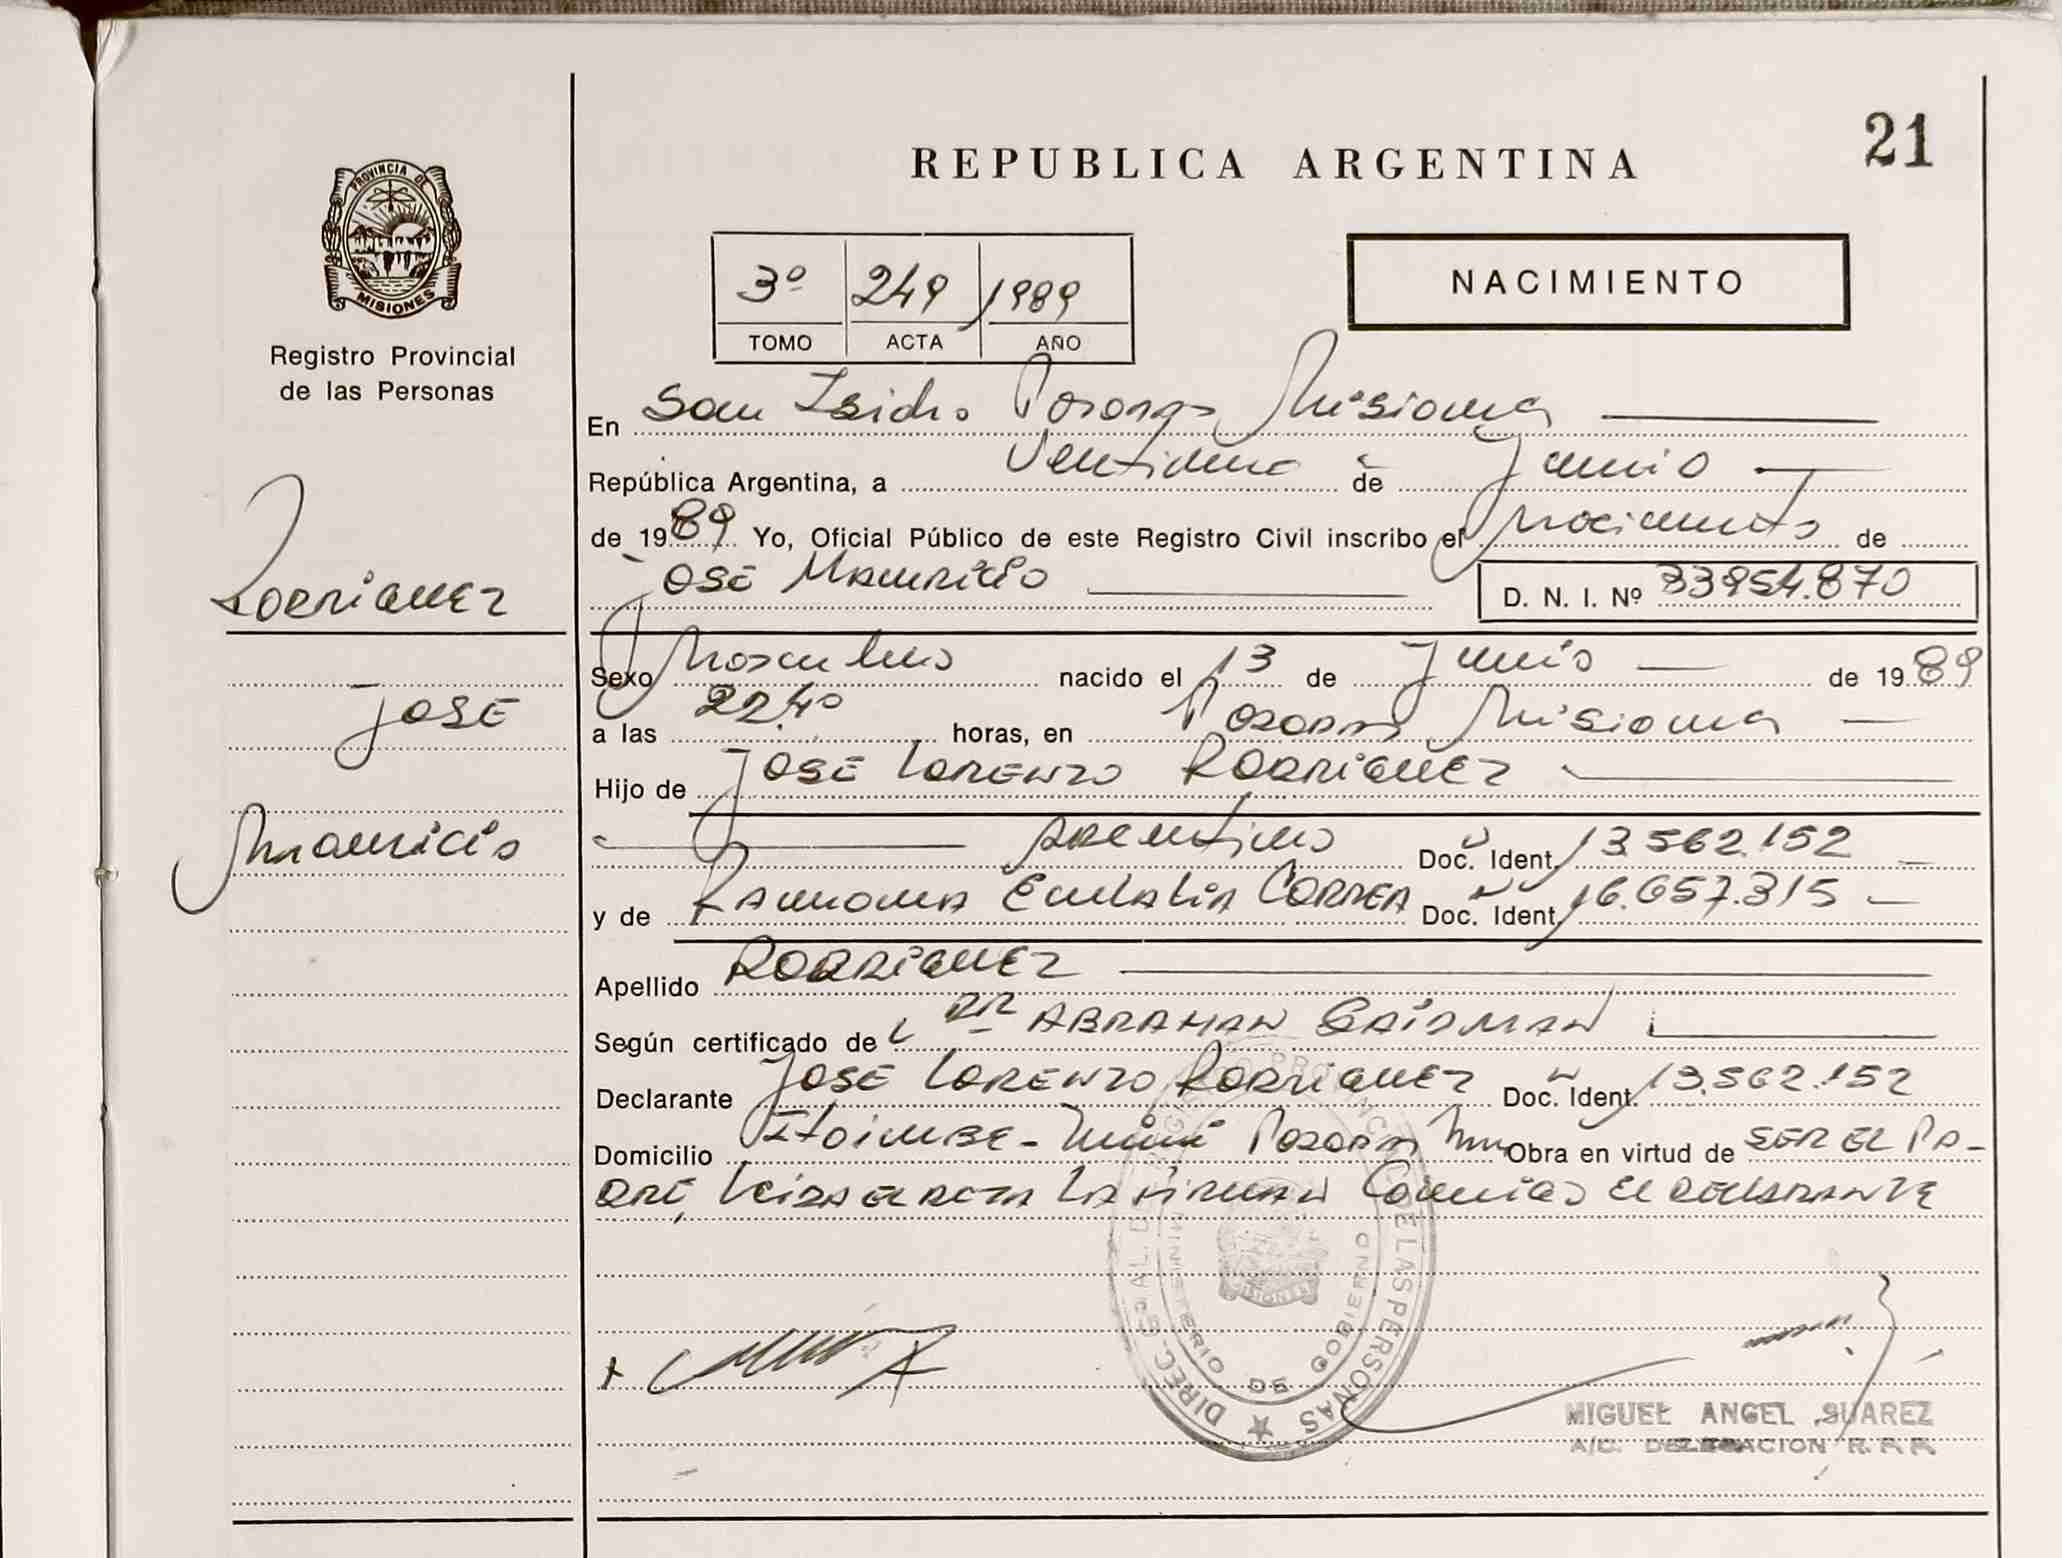 21
REPUBLICA ARGENTINA
PROVINCIA DE
MISIONES
Registro Provincial
de las Personas
NACIMIENTO
3º 249 1989
TOMO ACTA AÑO
En San Isidro Posadas Misiones
República Argentina, a de Junio
de 1989 Yo, Oficial Público de este Registro Civil inscribo el Nacimiento de
JOSE MAURICIO D. N. I. Nº 33954.870
RODRIGUEZ
JOSE
Mauricio
Sexo Masculino nacido el 13 de Junio de 1989
a las 22,40 horas, en Posadas Misiones
Hijo de JOSE LORENZO RODRIGUEZ
Argentino Doc. Ident 13.562.152
y de RAMONA EULALIA CORREA Doc. Ident 16.657.315
Apellido RODRIGUEZ
Según certificado de DR ABRAHAN GAIDMAN
Declarante JOSE LORENZO RODRIGUEZ Doc. Ident. 13.562.152
Domicilio ITAIMBE-Mini Posadas Mnes Obra en virtud de SER EL PA-
DRE, LEIDA EL ACTA LA FIRMAN Conmigo El DECLARANTE
DIREC. GRAL. DE REGISTRO PROVINCIAL DE LAS PERSONAS
MINISTERIO DE GOBIERNO
MISIONES
MIGUEL ANGEL SUAREZ
A/C. DELEGACION R. P. P.